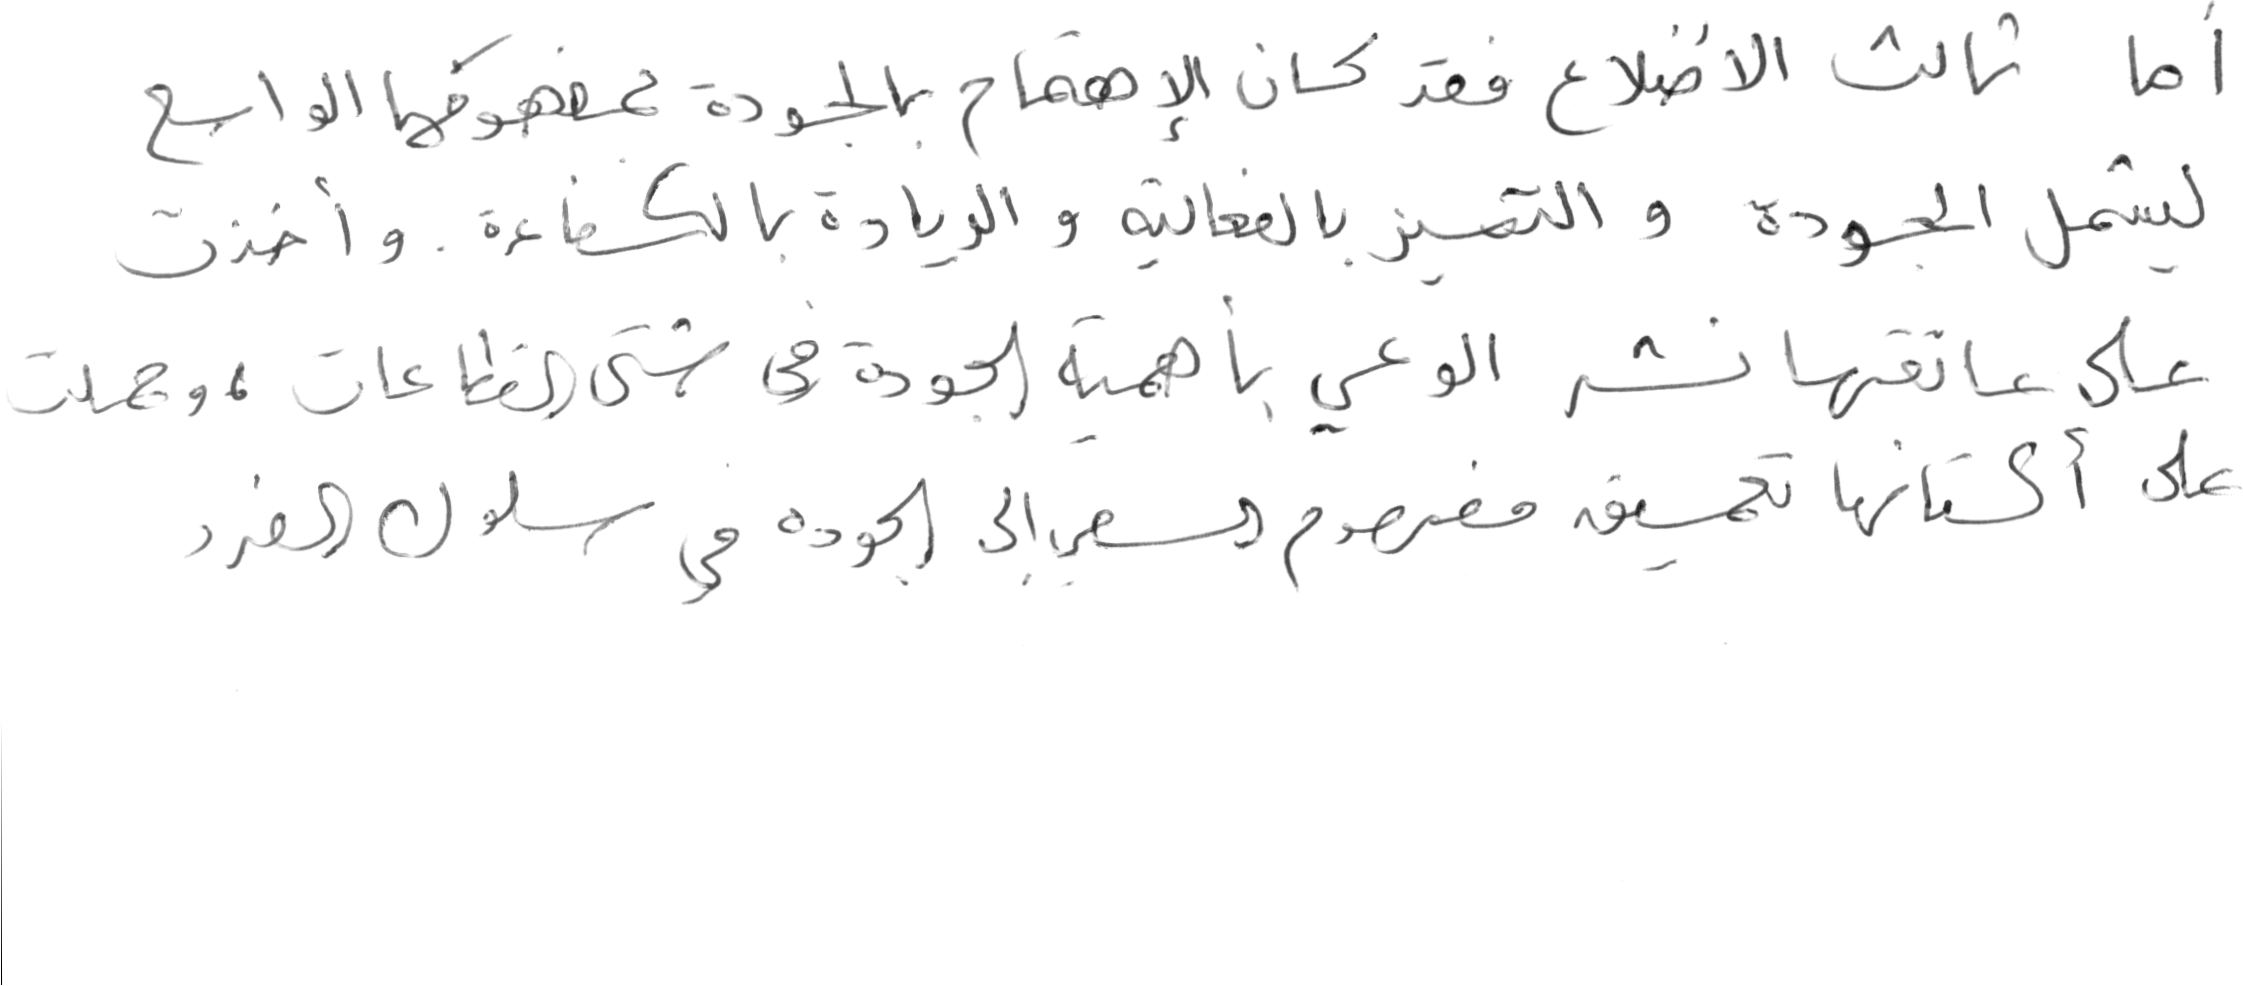 أما ثالث الأضلاع فقد كان الإهتمام بالجودة بمفهومها الواسع
ليشمل الجودة و التميز بالفعالية و الريادة بالكفاءة. وأخذت
على عاتقها نشر الوعي بأهمية الجودة في شتى القطاعات، وحملت
على أكتافها تعميق مفهوم السعي إلى الجودة في سلوك الفرد